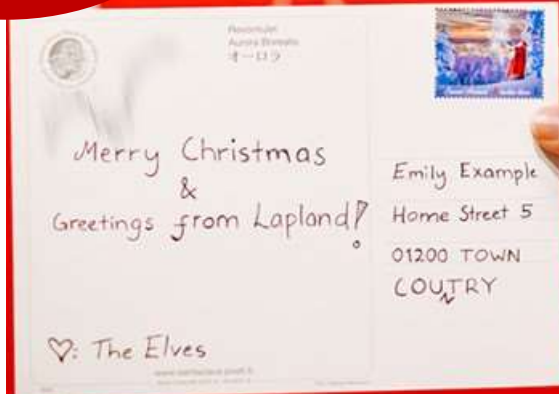 Revontulet
Aurora Borealis
オーロラ
Merry Christmas
&
Greetings from Lapland!
♡: The Elves
Emily Example
Home Street 5
01200 TOWN
COUNTRY